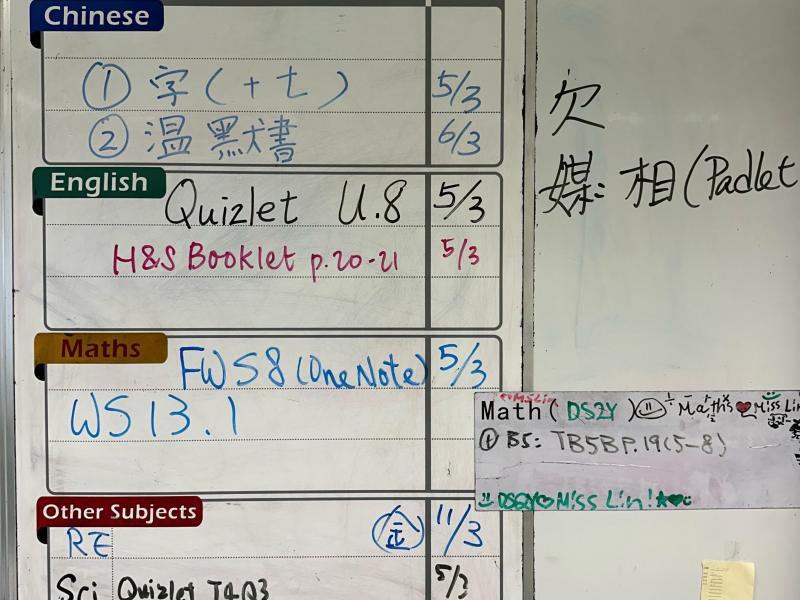 Chinese
① 字(十七) 5/3
② 温默書 6/3
English
Quizlet U.8 5/3
H&S Booklet p.20-21 5/3
Maths
FWS8 (OneNote) 5/3
WS 13.1
Other Subjects
RE 金 11/3
Sci Quizlet T4Q3 5/3
欠
媒: 相(Padlet
Math( DS2Y ) Maths Miss Lin
① B5: TB5B P.19(5-8)
DS2Y Miss Lin!